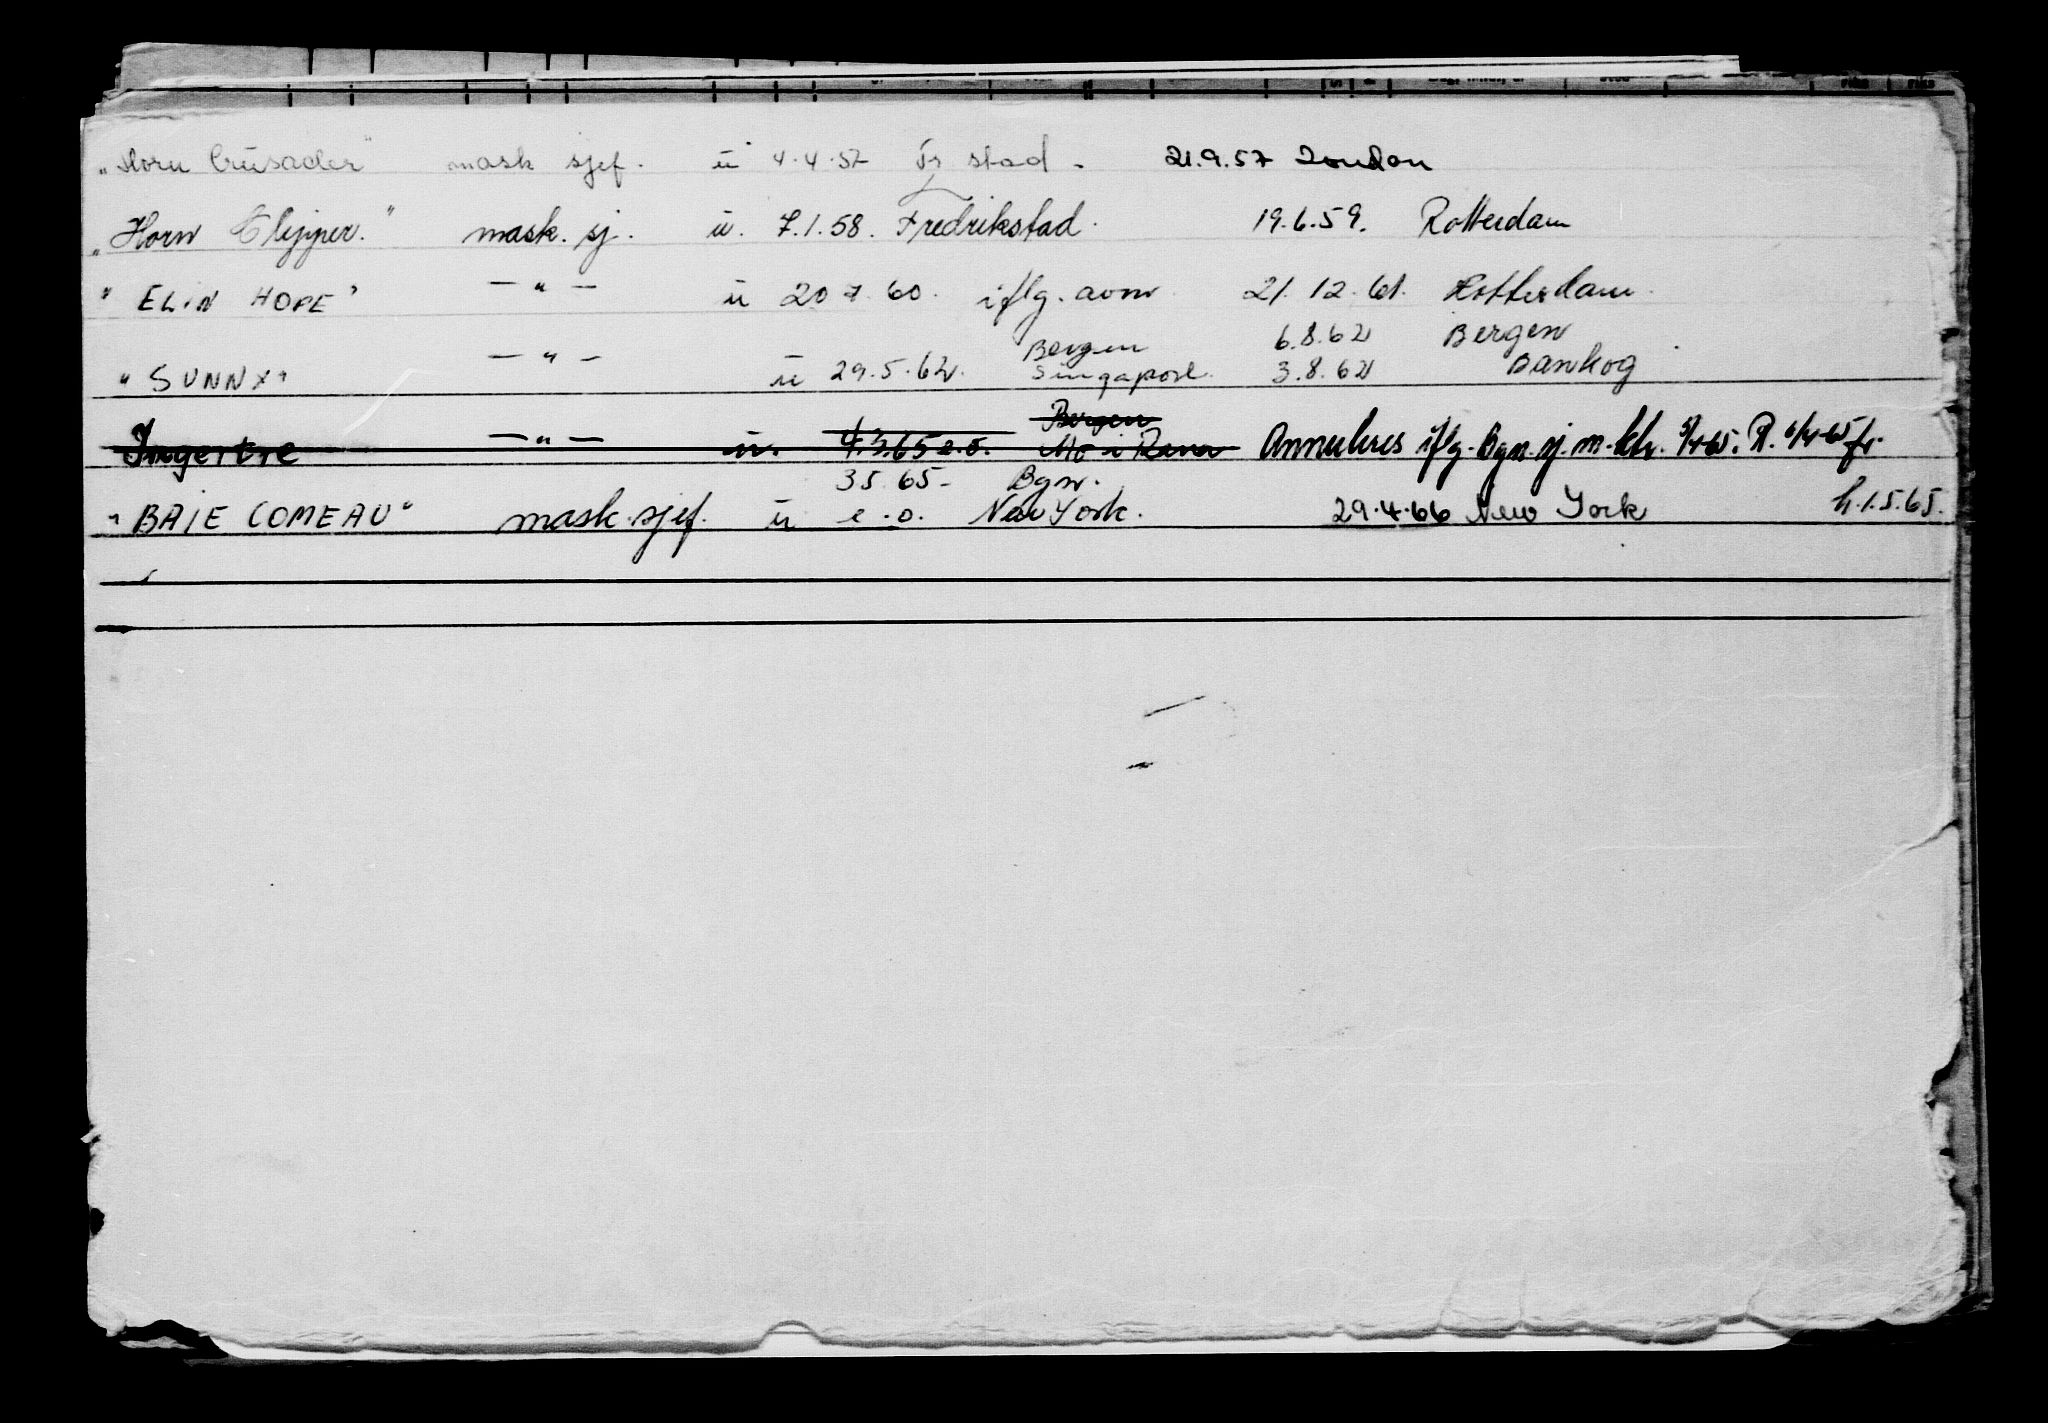 „Horn Crusader" mask sjef. u 4.4.57 Fr stad - 21.9.57 London
„Horn Clipper." mask. sj. u. 7.1.58. Fredrikstad. 19.6.59. Rotterdam
" ELIN HOPE" — " — u 20 7. 60. iflg. avm. 21.12.61. Rotterdam.
Bergen 6.8.62 Bergen
" SUNNY" — " — u 29.5.62. Singapore. 3.8.62 Bankog
Bergen
Ingertre — " — u. 7.3.65 e.o. Mo i Rana Annuleres iflg. Bgn. sj. m. ktr. 5/4-65. R. 6/4-65 fr.
3 5. 65 - Bgn.
" BAIE COMEAU" mask.sjef. u e.o. New York. 29.4.66 New York h.1.5.65.